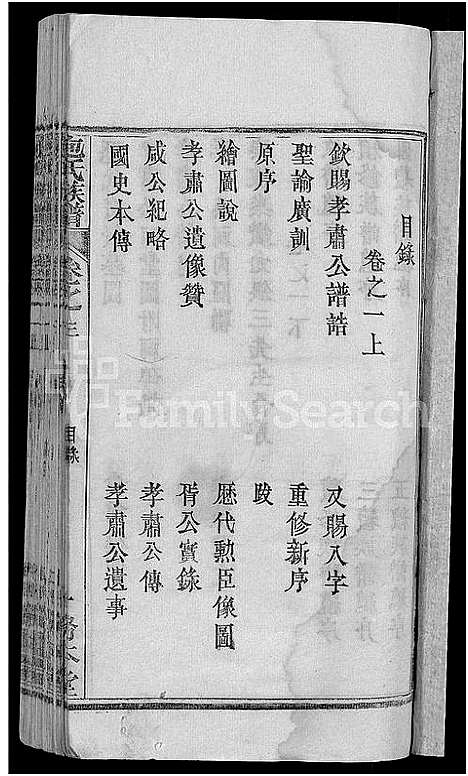 目錄
卷之一上
欽賜孝肅公譜誥 又賜八字
聖諭廣訓 重修新序
原序 跋
繪圖說 歷代勳臣像圖
孝肅公遺像贊 胥公實錄
咸公紀略 孝肅公傳
國史本傳 孝肅公遺事
包氏族譜
目錄
FamilySearch